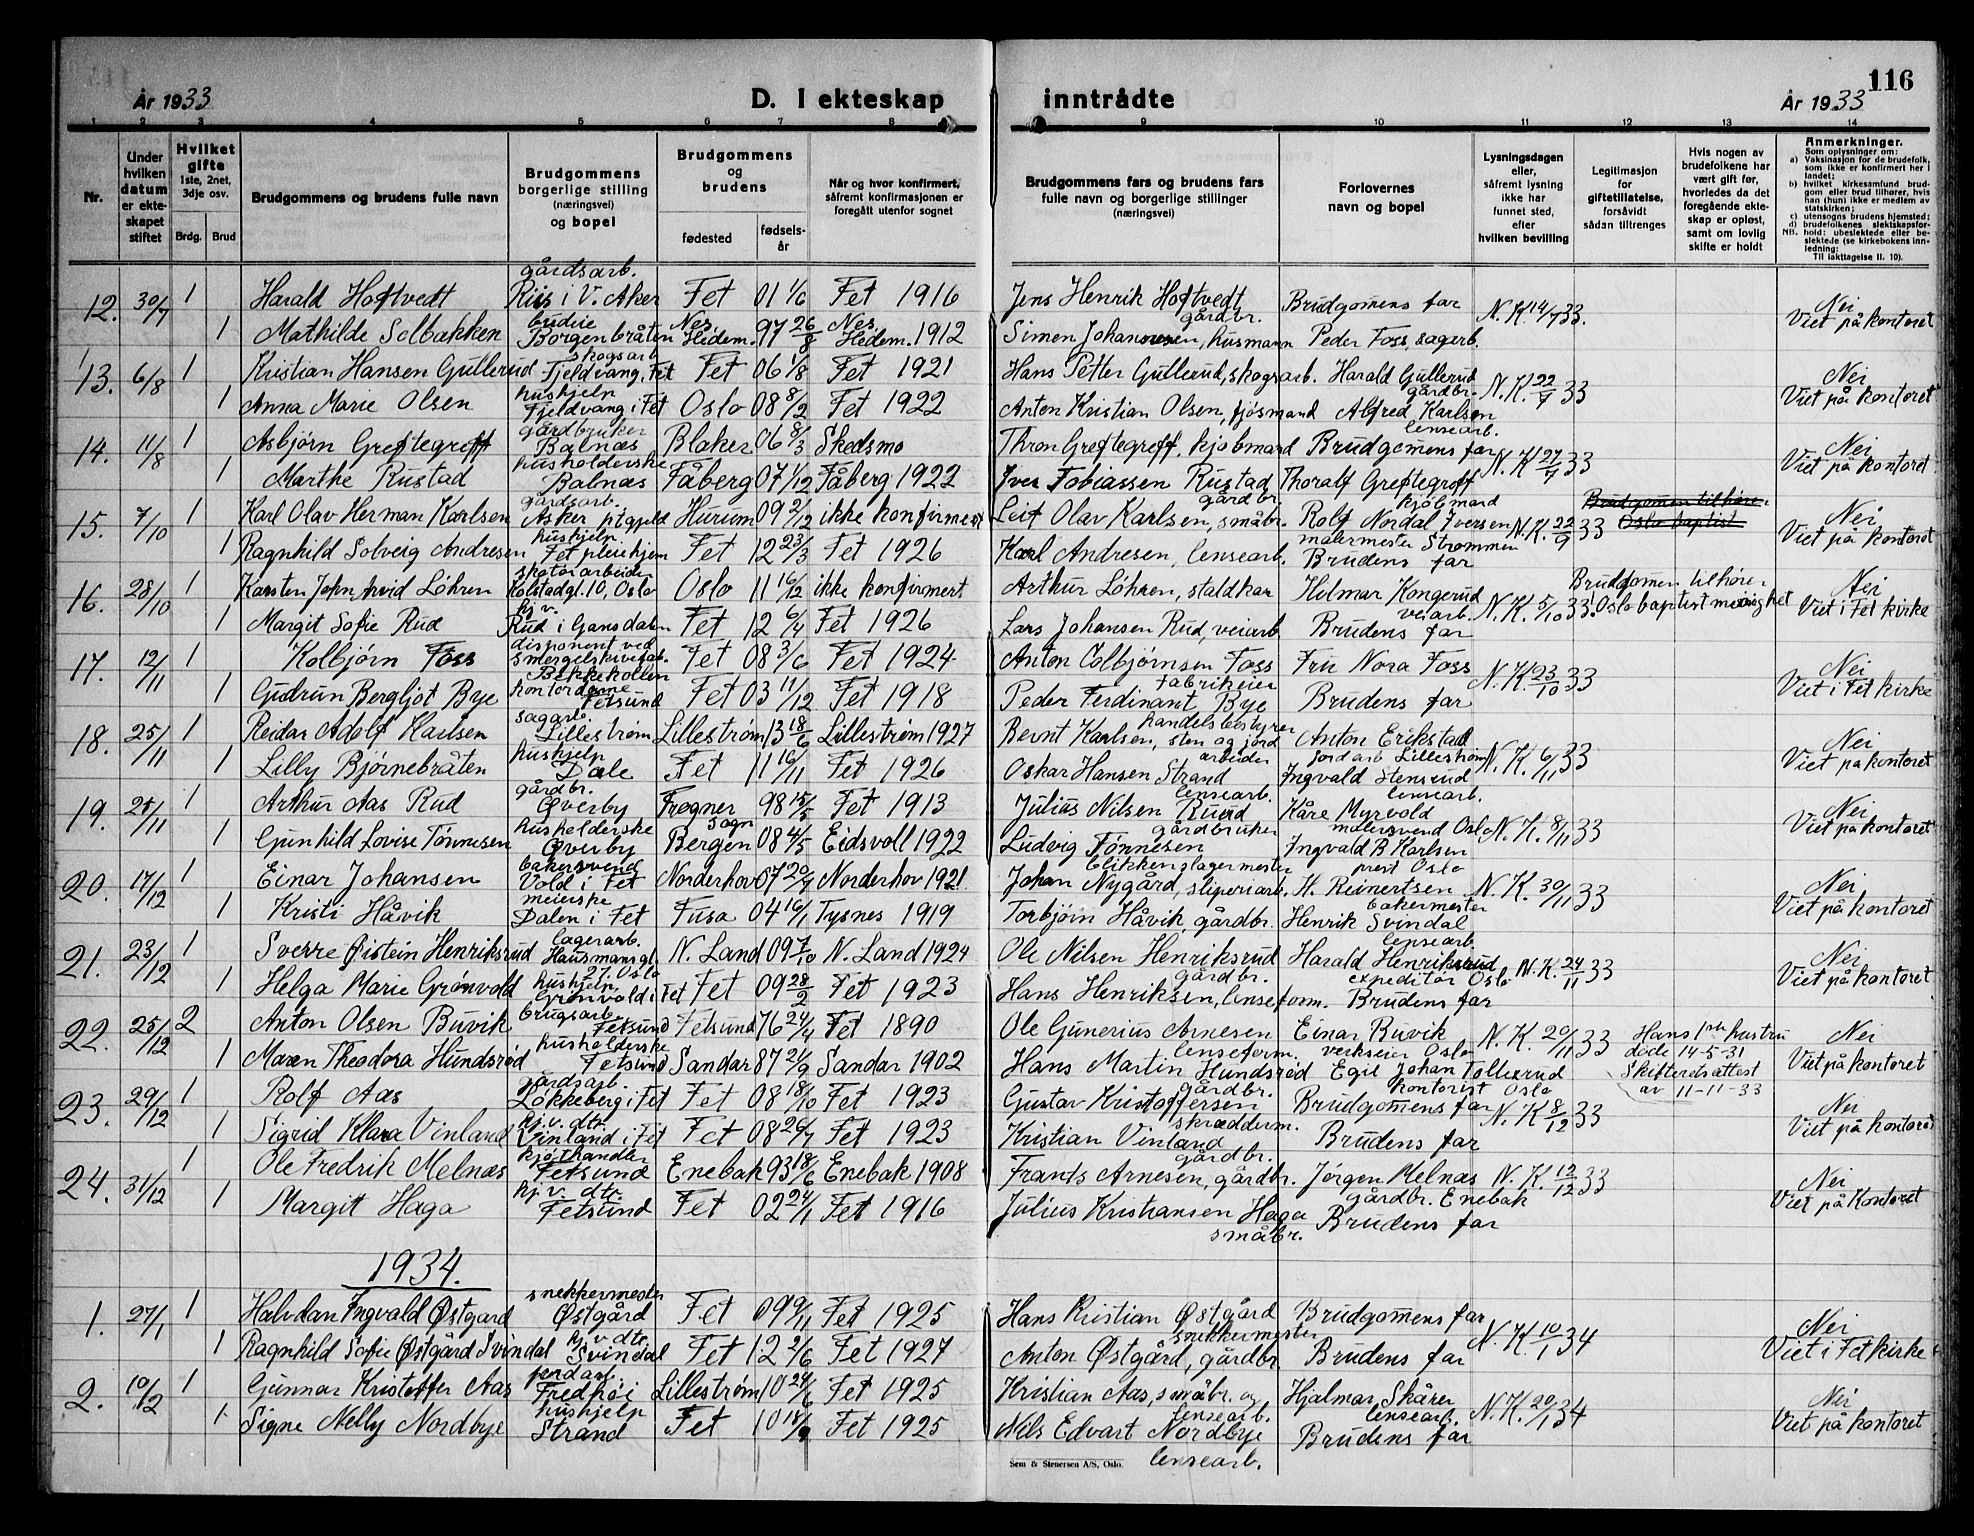 116
År 1933 D. I ekteskap inntrådte År 1933
1 2 3 4 5 6 7 8 9 10 11 12 13 14
Nr. | Under hvilken datum er ekteskapet stiftet | Hvilket gifte 1ste, 2net, 3dje osv. Brdg. Brud | Brudgommens og brudens fulle navn | Brudgommens borgerlige stilling (næringsvei) og bopel | Brudgommens og brudens fødested fødselsår | Når og hvor konfirmert, såfremt konfirmasjonen er foregått utenfor sognet | Brudgommens fars og brudens fars fulle navn og borgerlige stillinger (næringsvei) | Forlovernes navn og bopel | Lysningsdagen eller, såfremt lysning ikke har funnet sted, efter hvilken bevilling | Legitimasjon for giftetillatelse, forsåvidt sådan tiltrenges | Hvis nogen av brudefolkene har vært gift før, hvorledes da det foregående ekteskap er opløst, samt om lovlig skifte er holdt | Anmerkninger. Som oplysninger om: a) Vaksinasjon for de brudefolk, som ikke er konfirmert her i landet; b) hvilket kirkesamfund brudgom eller brud tilhører, hvis han (hun) ikke er medlem av statskirken; c) utensogns brudens hjemsted; d) brudefolkenes slektskapsforhold: ubeslektede eller beslektede (se kirkebokens innledning: NB. Til iakttagelse II. 10).
12. 30/7 1 Harald Hoftvedt gårdsarb. Riis i V. Aker Fet 01 1/6 Fet 1916 Jens Henrik Hoftvedt gårdbr. Brudgomens far N.K. 14/7 33. Nei
1 Mathilde Solbakken budeie Borgenbråten Nes, Hedem. 97 26/8 Nes Hedem. 1912 Simen Johannesen, husmann Peder Foss, sagarb. Viet på kontoret
13. 6/8 1 Kristian Hansen Gullerud skogsarb Fjeldvang, Fet Fet 06 1/8 Fet 1921 Hans Petter Gullerud, skogsarb. Harald Gullerud gårdbr. N.K. 22/7 33 Nei
1 Anna Marie Olsen hushjelp Fjeldvang i Fet Oslo 08 8/2 Fet 1922 Anton Kristian Olsen, fjøsmand Alfred Karlsen lensearb. Viet på kontoret
14. 11/8 1 Asbjørn Greftegreff gårdbruker Balnæs Blaker 06 8/3 Skedsmo Thron Greftegreff, kjøbmand Brudgomens far N.K 27/7 33 Nei
1 Marthe Rustad husholderske Balnæs Fåberg 07 1/12 Fåberg 1922 Iver Tobiassen Rustad gårdbr. Thoralf Greftegreff kjøbmand Viet på kontoret
15. 7/10 1 Karl Olav Herman Karlsen gårdsarb. Asker p.gjeld Hurum 09 2/12 ikke konfirmert Leif Olav Karlsen, småbr. Rolf Nordal Iversen malermester Strømmen N.K. 22/9 33 Brudgomen tilhører Oslo baptist Nei
1 Ragnhild Solveig Andresen hushjelp. Fet pleiehjem Fet 12 23/3 Fet 1926 Karl Andresen, lensearb. Brudens far Viet på kontoret
16. 28/10 1 Karsten John Arvid Löhren skotøiarbeider Kolstadgt. 10, Oslo Oslo 11 16/12 ikke konfirmert Arthur Löhren, staldkar Helmar Kongerud veiarb. N.K. 5/10 33. Brudgomen tilhører Oslo baptist menighet Nei
1 Margit Sofie Rud hj.v. Rud i Gansdalen Fet 12 6/4 Fet 1926 Lars Johansen Rud, veiarb. Brudens far Viet i Fet kirke
17. 12/11 1 Kolbjørn Foss disponent ved smergelskivefab. Bekkekollen Fet 08 3/6 Fet 1924 Anton Colbjørnsen Foss fabrikeier Fru Nora Foss N.K. 23/10 33 Nei
1 Gudrun Bergljot Bye kontordame Fetsund Fet 03 11/12 Fet 1918 Peder Ferdinant Bye handelsbestyrer Brudens far Viet i Fet kirke
18. 25/11 1 Reidar Adolf Karlsen sagarb. Lillestrøm Lillestrøm 13 18/6 Lillestrøm 1927 Bernt Karlsen, sten og jord arbeider Anton Erikstad Jordarb Lillestrøm N.K. 6/11 33 Nei
1 Lilly Bjørnebråten hushjelp Dale Fet 11 16/11 Fet 1926 Oskar Hansen Strand lensearb. Ingvald Stensrud lensearb. Viet på kontoret
19. 25/11 1 Arthur Aas Rud gårdbr. Øverby Frogner sogn 98 15/5 Fet 1913 Julius Nilsen Ruud gårdbruker Kåre Myrvold malersvend Oslo N.K. 8/11 33 Nei
1 Gunhild Lovise Tønnesen husholderske Øverby Bergen 08 4/5 Eidsvoll 1922 Ludvig Tønnesen blikkenslagermester Ingvald B Karlsen prest Oslo Viet på kontoret
20. 17/12 1 Einar Johansen bakersvend Vold i Fet Norderhov 07 20/7 Norderhov 1921 Johan Nygård, sliperiarb. H. Reinertsen bakermester N.K. 30/11 33 Nei
1 Kristi Håvik meierske Dalen i Fet Fusa 04 16/1 Tysnes 1919 Torbjørn Håvik, gårdbr. Henrik Svindal lensearb. Viet på kontoret
21. 23/12 1 Sverre Øistein Henriksrud lagerarb. Hausmansgt. 27, Oslo N. Land 09 7/10 N. Land 1924 Ole Nilsen Henriksrud gårdbr. Harald Henriksrud expeditør Oslo N.K. 24/11 33 Nei
1 Helga Marie Grønvold hushjelp, Grønvold i Fet Fet 09 28/2 Fet 1923 Hans Henriksen, lenseform. Brudens far Viet på kontoret
22. 25/12 2 Anton Olsen Buvik brugsarb. Fetsund Fetsund 76 24/4 Fet 1890 Ole Gunerius Arnesen lenseform. Einar Buvik verkseier Oslo N.K. 20/11 33 Hans 1ste hustru døde 14-5-31 Nei
1 Maren Theodora Hundsrød husholderske Fetsund Sandar 87 24/9 Sandar 1902 Hans Martin Hundsrød gårdbr. Egil Johan Tollerud kontorist Oslo Skifteretsattest av 11-11-33 Viet på kontoret
23. 29/12 1 Rolf Aas gårdsarb. Løkkeberg i Fet Fet 08 18/10 Fet 1923 Gustav Kristoffersen skrædderm. Brudgomens far N.K 8/12 33 Nei
1 Sigrid Klara Vinland hj.v. dtr. Vinland i Fet Fet 08 26/7 Fet 1923 Kristian Vinland gårdbr. Brudens far Viet på kontoret
24. 31/12 1 Ole Fredrik Melnæs kjøthandler Fetsund Enebak 93 18/6 Enebak 1908 Frants Arnesen, gårdbr. Jørgen Melnæs gårdbr. Enebak N.K. 12/12 33 Nei
1 Margit Haga hj.v. dtr. Fetsund Fet 02 24/1 Fet 1916 Julius Kristiansen Haga småbr. Brudens far Viet på kontoret
1934.
1. 27/1 1 Halvdan Ingvald Østgård snekkermester Østgård Fet 09 9/11 Fet 1925 Hans Kristian Østgård snekkermester Brudgomens far N.K. 10/1 34 Nei
1 Ragnhild Sofie Østgård Svindal hj.v. dtr. Svindal Fet 12 2/6 Fet 1927 Anton Østgård, gårdbr Brudens far Viet i Fet kirke
2. 10/2 1 Gunnar Kristoffer Aas Fredhøi Lillestrøm 10 24/6 Fet 1925 Kristian Aas, småbr. og lensearb. Hjalmar Skårer lensearb. N.K. 20/1 34 Nei
1 Signe Nelly Nordbye hushjelp Strand Fet 10 18/9 Fet 1925 Nils Edvart Nordbye lensearb. Brudens far Viet på kontoret
Sem & Stenersen A/S, Oslo.